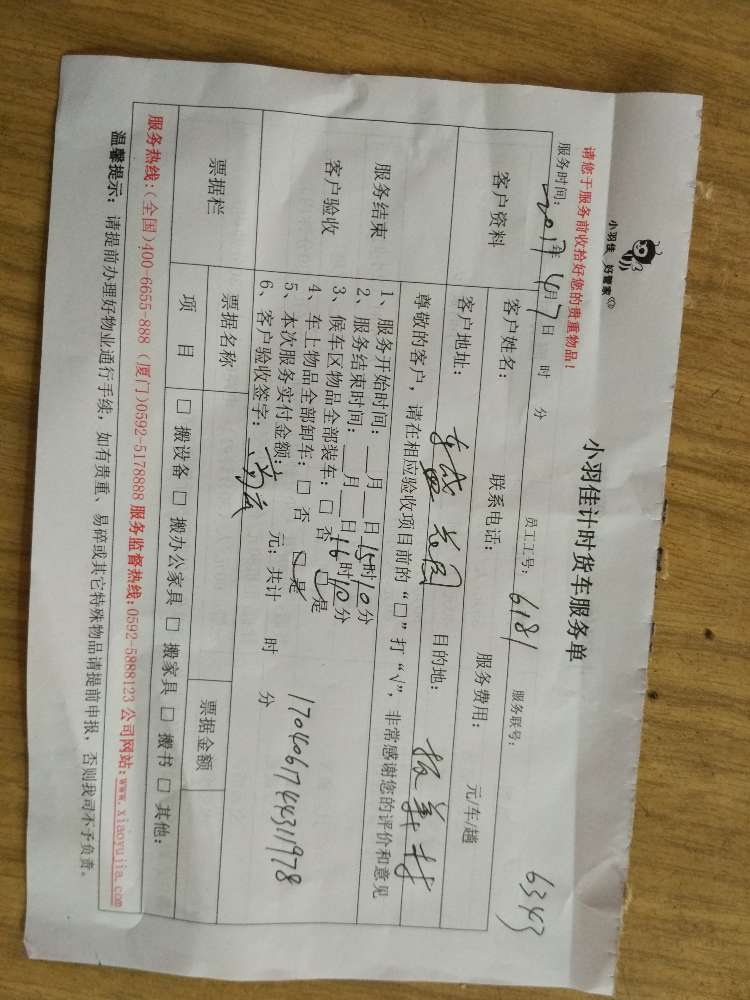 小羽佳 好管家
小羽佳计时货车服务单
6343
请您于服务前收拾好您的贵重物品!
服务时间: 2017年4月7日 时 分 员工工号: 6181 服务联号:
客户资料 客户姓名: 联系电话: 服务费用: 元/车/趟
客户地址: 目的地:
尊敬的客户，请在相应验收项目前的“□”打“√”，非常感谢您的评价和意见
服务结束
客户验收
1、服务开始时间: 月 日 15时10分
2、服务结束时间: 月 日 16时10分
3、候车区物品全部装车: □ 否 □ 是
4、车上物品全部卸车: □ 否 □ 是
5、本次服务实付金额: 元; 共计 时 分
6、客户验收签字:
1704061744311978
票据栏 票据名称 票据金额
项 目 □ 搬设备 □ 搬办公家具 □ 搬家具 □ 搬书 □ 其他:
服务热线:(全国)400-6655-888 (厦门)0592-5178888 服务监督热线:0592-5888123 公司网站:www.xiaoyujia.com
温馨提示: 请提前办理好物业通行手续，如有贵重、易碎或其它特殊物品请提前申报，否则我司不予负责。